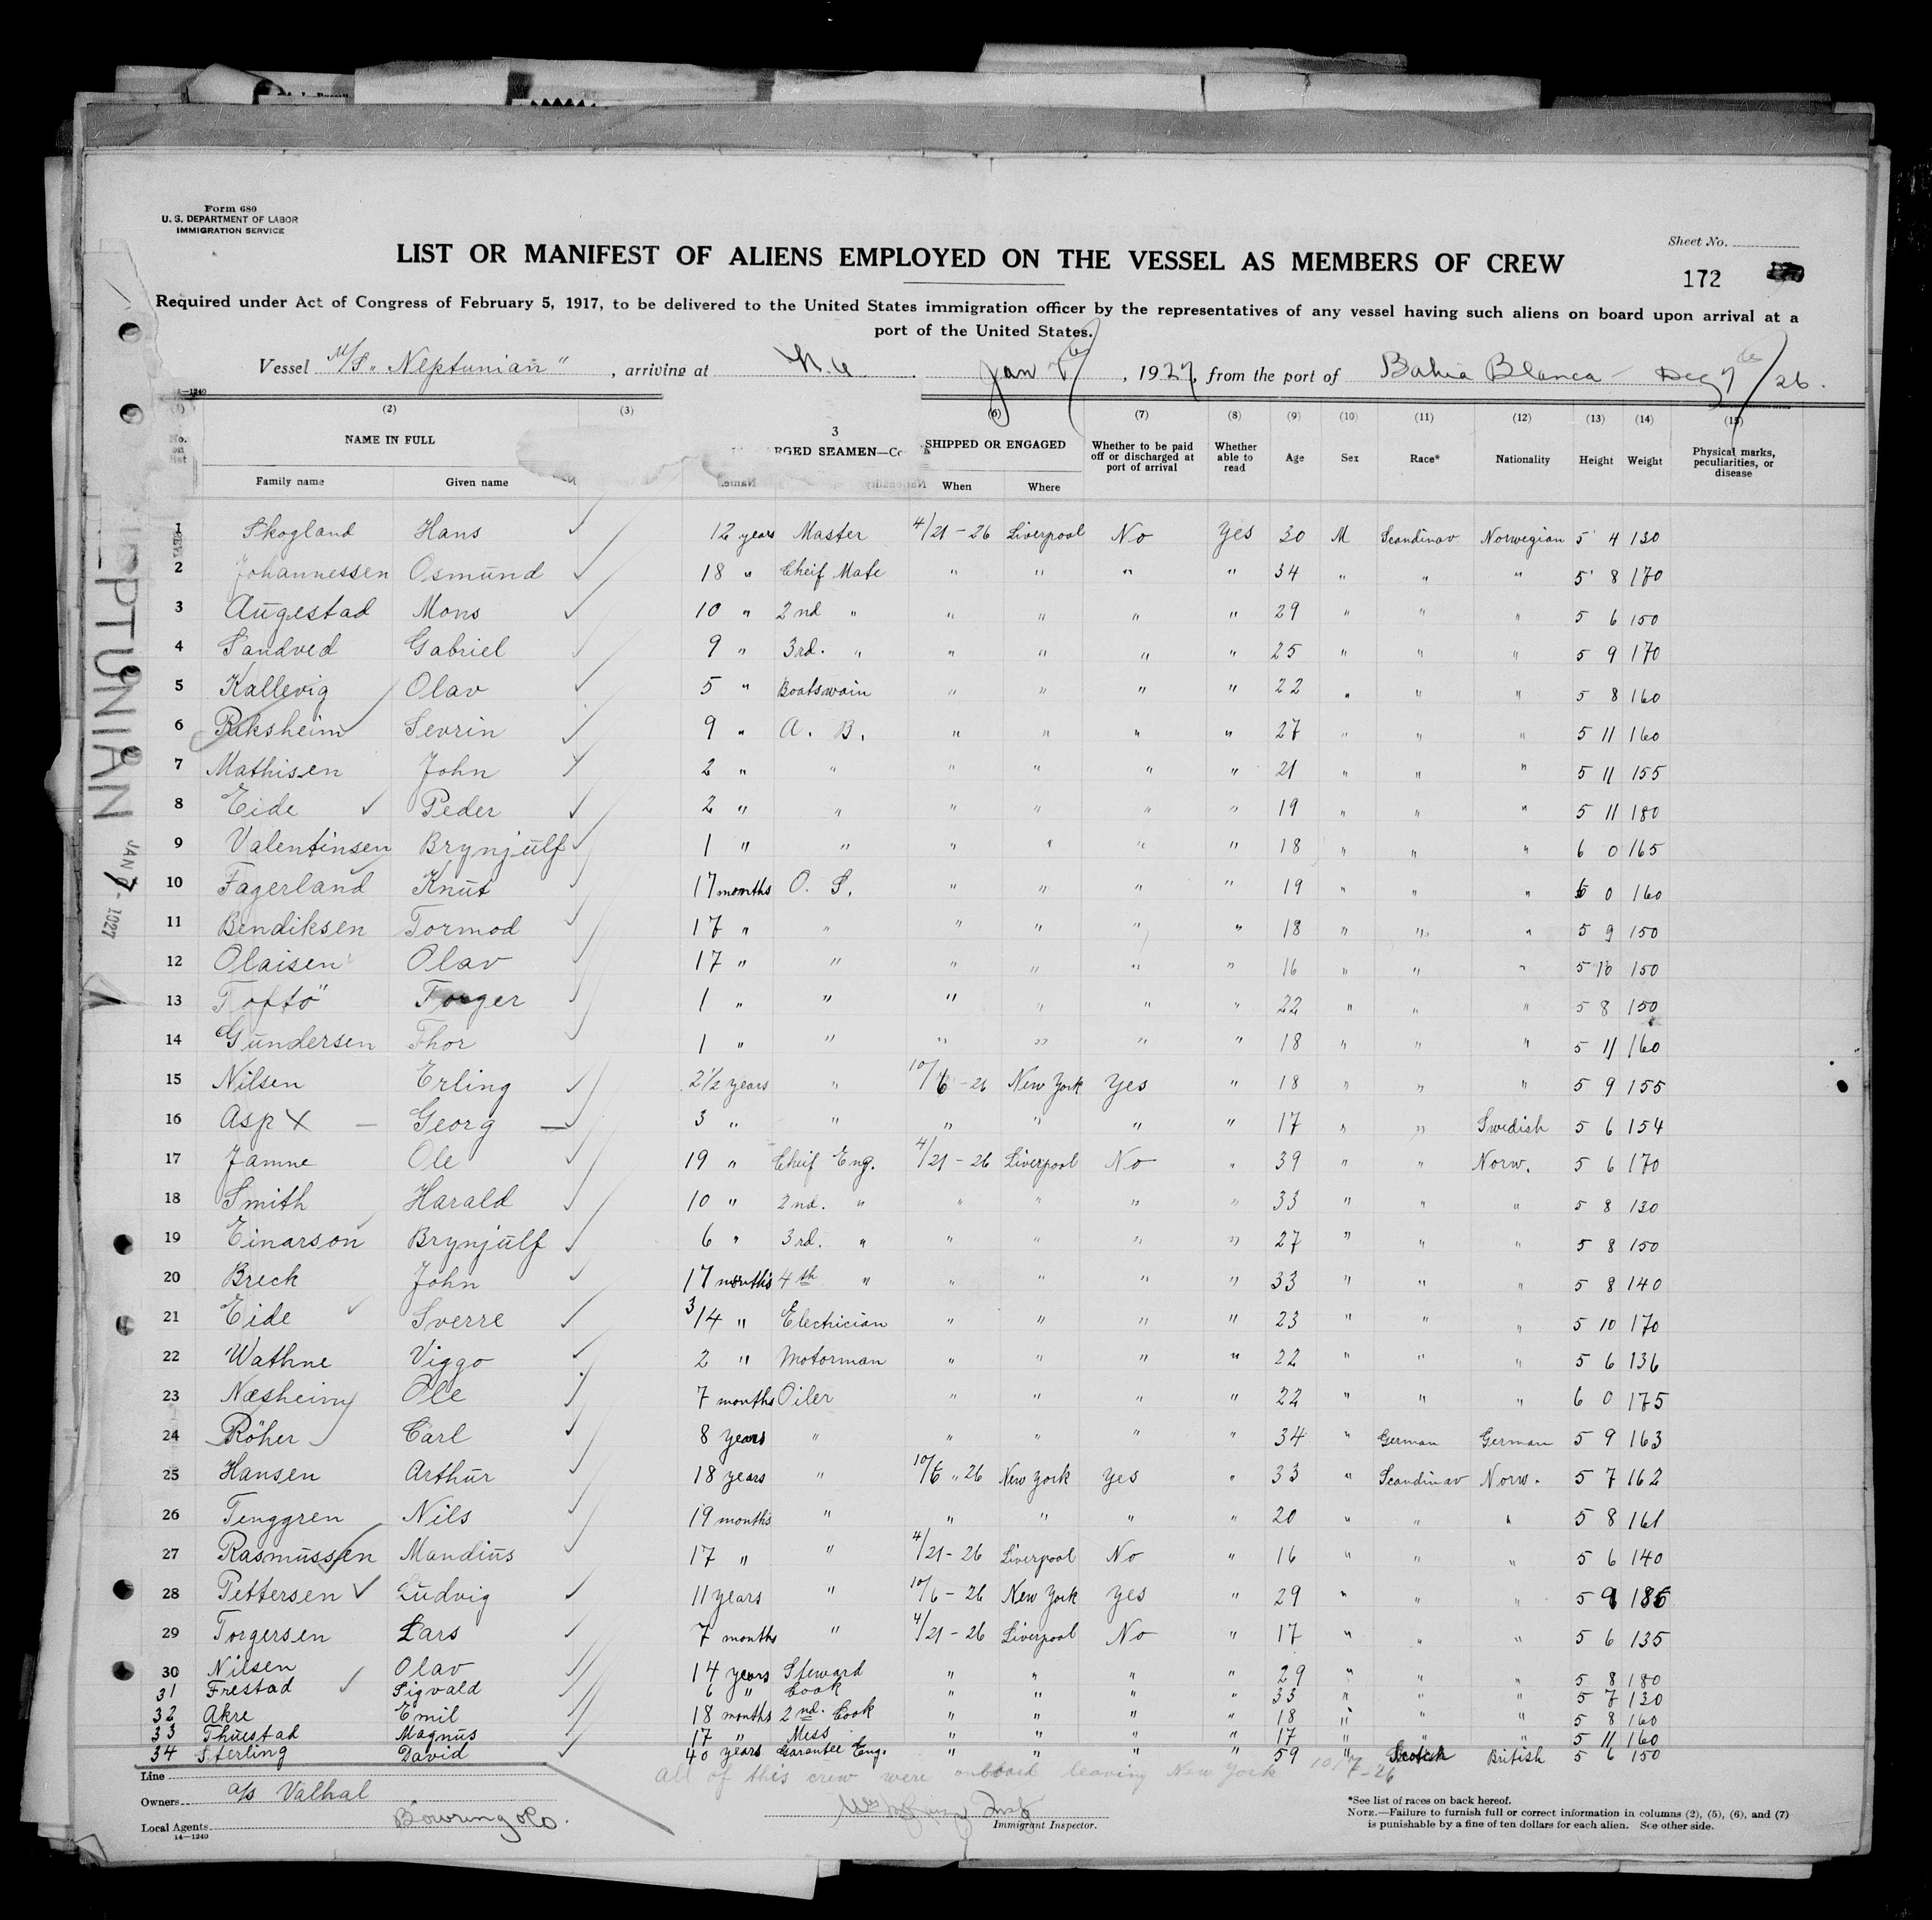 Form 680
U. S. DEPARTMENT OF LABOR
IMMIGRATION SERVICE
Sheet No.
LIST OR MANIFEST OF ALIENS EMPLOYED ON THE VESSEL AS MEMBERS OF CREW
172
Required under Act of Congress of February 5, 1917, to be delivered to the United States immigration officer by the representatives of any vessel having such aliens on board upon arrival at a
port of the United States.
Vessel M/S „ Neptunian ", arriving at Jan 1927, from the port of Bahia Blanca — Dec 7 / 26.
14—1240
(2) (3) (6) (7) (8) (9) (10) (11) (12) (13) (14) (15)
No. on list NAME IN FULL Family name Given name 3 RGED SEAMEN—Co SHIPPED OR ENGAGED When Where Whether to be paid off or discharged at port of arrival Whether able to read Age Sex Race* Nationality Height Weight Physical marks, peculiarities, or disease
1 Skogland Hans 12 years Master 4/21 – 26 Liverpool No Yes 30 M Scandinav Norwegian 5 4 130
2 Johannessen Osmund 18 " Cheif Mate " " " " 34 " " " 5 8 170
3 Augestad Mons 10 " 2nd " " " " " 29 " " " 5 6 150
4 Sandved Gabriel 9 " 3rd. " " " " " 25 " " " 5 9 170
5 Kallevig Olav 5 " Boatswain " " " " 22 " " " 5 8 160
6 Raksheim Sevrin 9 " A. B. " " " " 27 " " " 5 11 160
7 Mathisen John 2 " " " " " " 21 " " " 5 11 155
8 Eide Peder 2 " " " " " " 19 " " " 5 11 180
9 Valentinsen Brynjulf 1 " " " " " " 18 " " " 6 0 165
10 Fagerland Knut 17 months O. S. " " " " 19 " " " 6 0 160
11 Bendiksen Tormod 17 " " " " " " 18 " " " 5 9 150
12 Olaisen Olav 17 " " " " " " 16 " " " 5 10 150
13 Toftö Torger 1 " " " " " " 22 " " " 5 8 150
14 Gundersen Thor 1 " " " " " " 18 " " " 5 11 160
15 Nilsen Erling 2½ years " 10/6 – 26 New York Yes " 18 " " " 5 9 155
16 Asp X — Georg — 3 " " " " " " 17 " " Swedish 5 6 154
17 Jamne Ole 19 " Cheif Eng. 4/21 – 26 Liverpool No " 39 " " Norw. 5 6 170
18 Smith Harald 10 " 2nd. " " " " " 33 " " " 5 8 130
19 Einarson Brynjulf 6 " 3rd. " " " " " 27 " " " 5 8 150
20 Breck John 17 months 4th " " " " " 33 " " " 5 8 140
21 Eide Sverre 3/14 " Electrician " " " " 23 " " " 5 10 170
22 Wathne Viggo 2 " Motorman " " " " 22 " " " 5 6 136
23 Næsheim Ole 7 months Oiler " " " " 22 " " " 6 0 175
24 Röher Carl 8 years " " " " " 34 " German German 5 9 163
25 Hansen Arthur 18 years " 10/6 " 26 New York Yes " 33 " Scandinav Norw. 5 7 162
26 Tenggren Nils 19 months " " " " " 20 " " " 5 8 161
27 Rasmussen Mandius 17 " " 4/21 – 26 Liverpool No " 16 " " " 5 6 140
28 Pettersen Ludvig 11 years " 10/6 – 26 New York Yes " 29 " " " 5 9 186
29 Torgersen Lars 7 months " 4/21 – 26 Liverpool No " 17 " " " 5 6 135
30 Nilsen Olav 14 years Steward " " " " 29 " " " 5 8 180
31 Frestad Sigvald 6 " Cook " " " " 33 " " " 5 7 130
32 Akre Emil 18 months 2nd. Cook " " " " 18 " " " 5 8 160
33 Thuestad Magnus 17 " Mess " " " " 17 " " " 5 11 160
34 Sterling David 40 years Garantee Eng. " " " " 59 " Scotch British 5 6 150
NEPTUNIAN JAN 7 - 1927
all of this crew were onboard leaving New York 10/7-26
Line
Owners a/s Valhal
Local Agents Bowring & Co.
14—1240
Immigrant Inspector.
*See list of races on back hereof.
NOTE.—Failure to furnish full or correct information in columns (2), (5), (6), and (7)
is punishable by a fine of ten dollars for each alien. See other side.